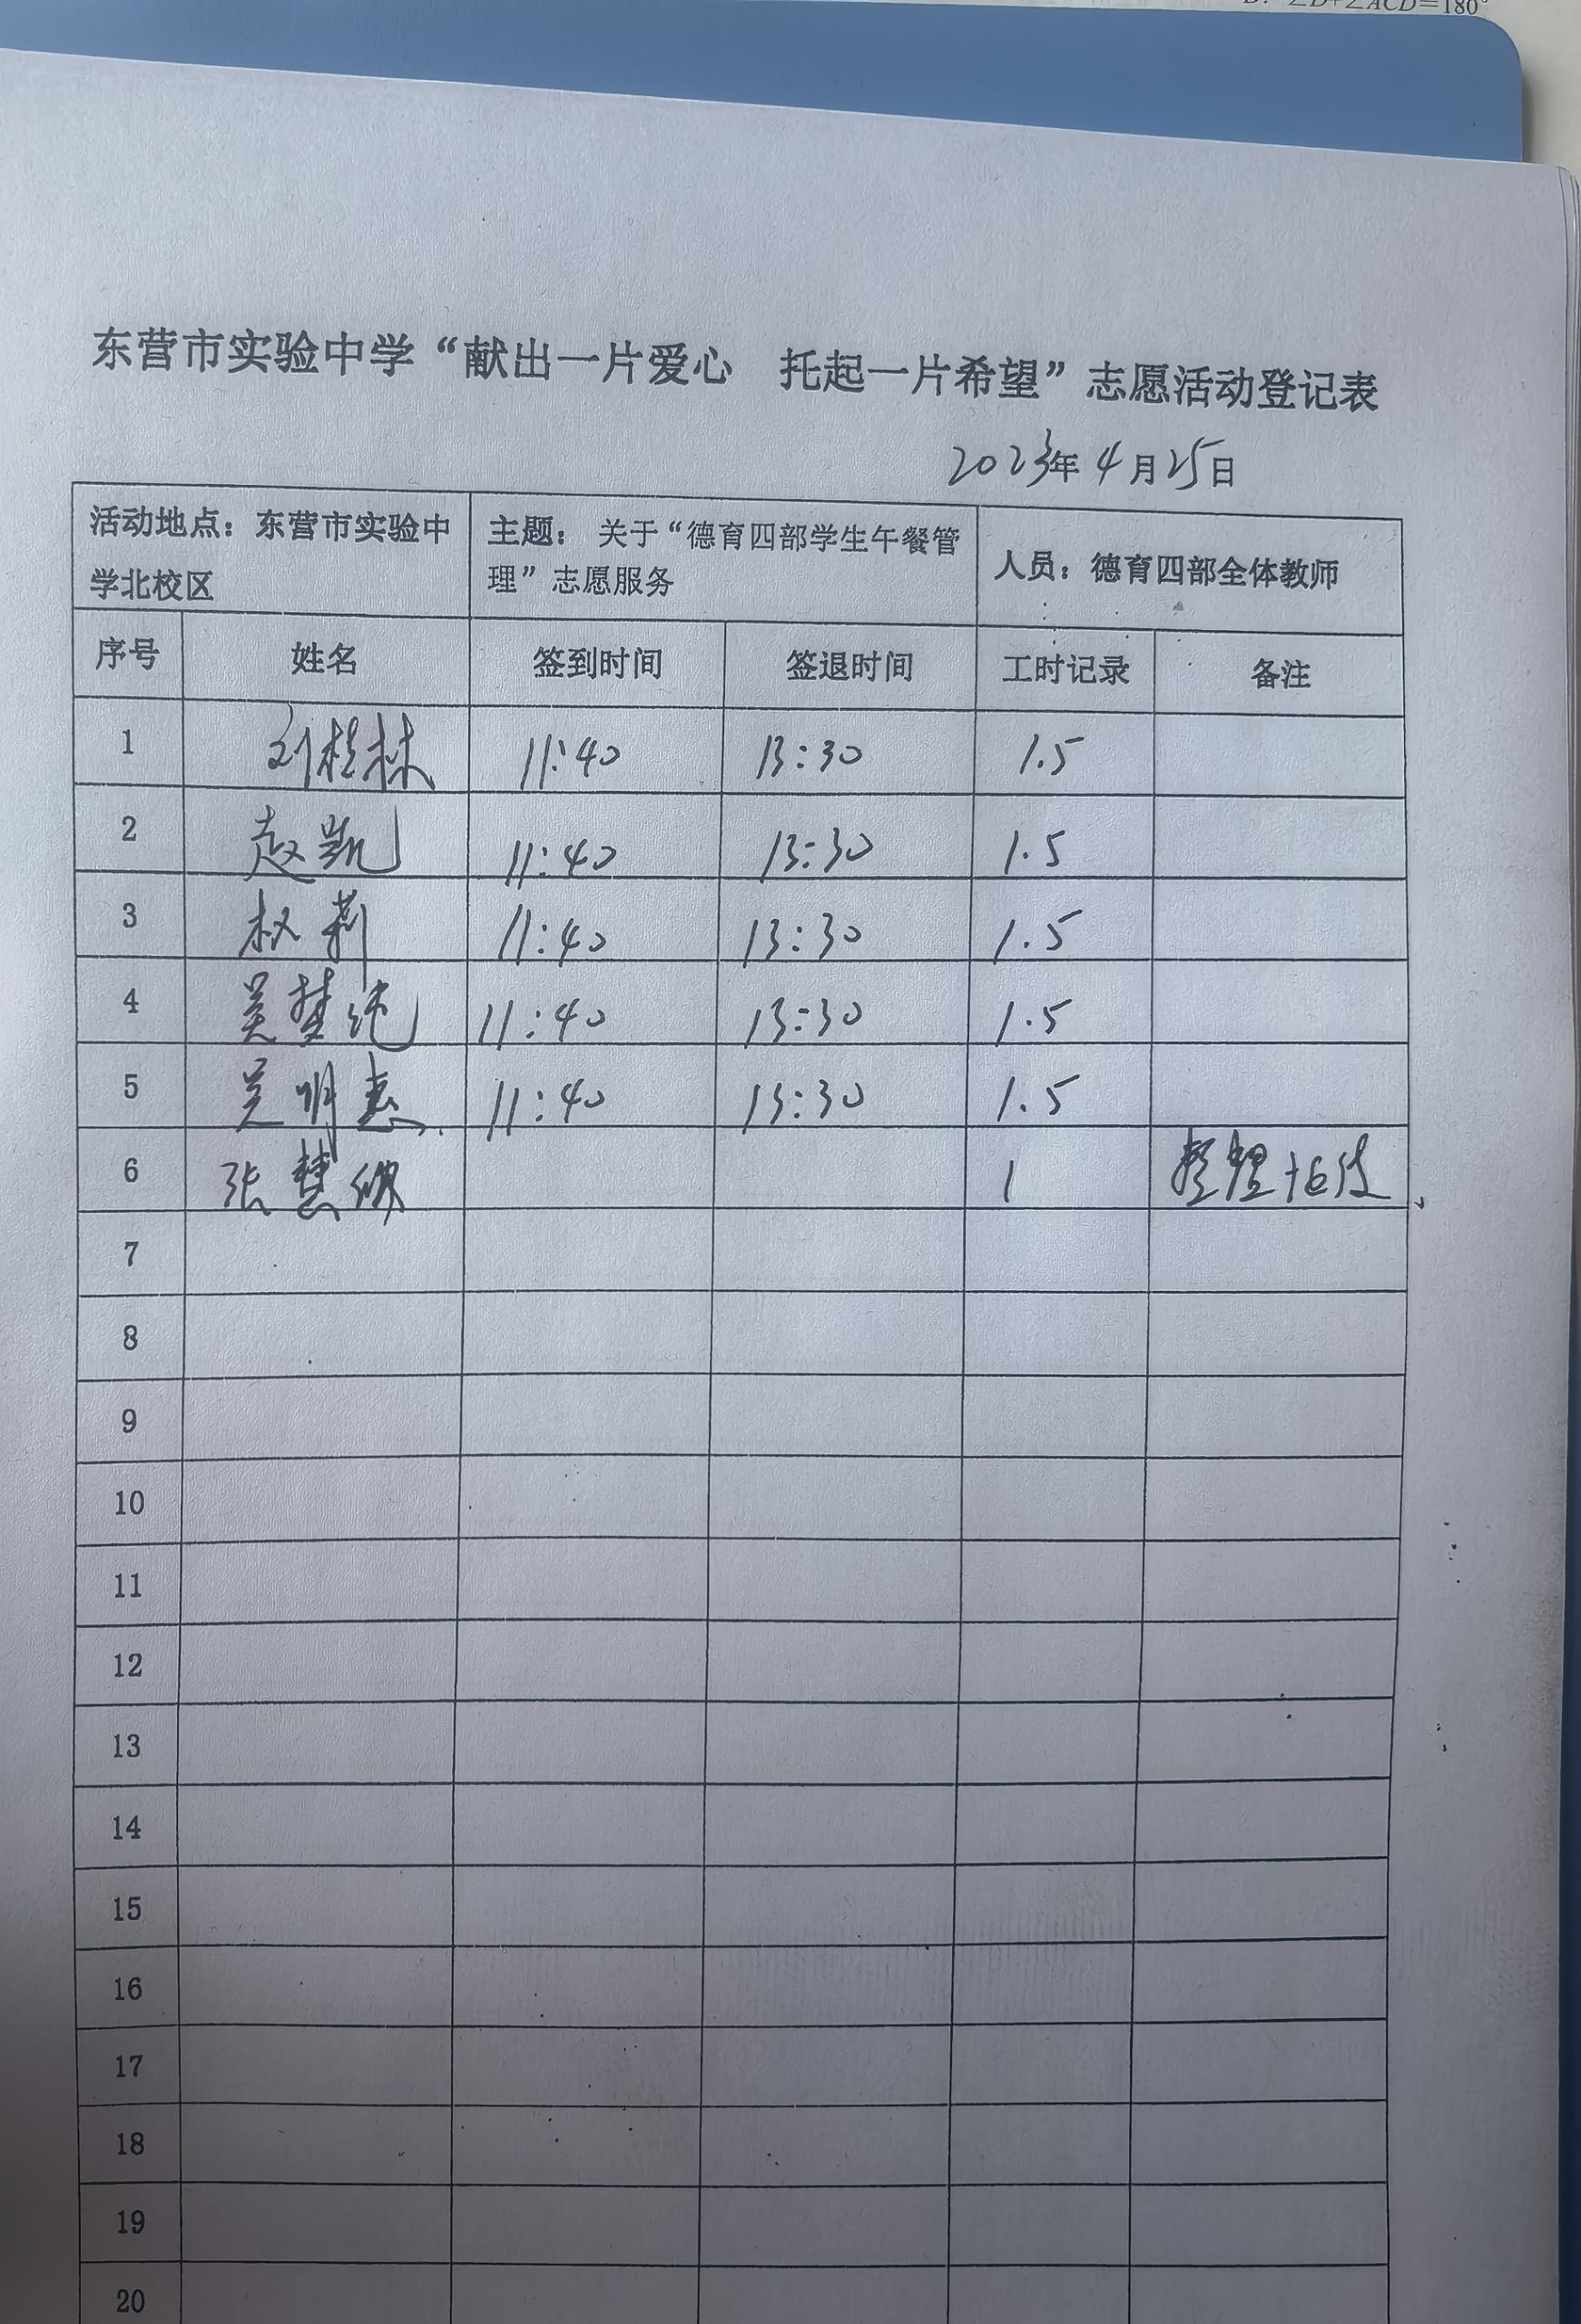 D. ∠D+∠ACD=180°
东营市实验中学“献出一片爱心 托起一片希望”志愿活动登记表
2023年4月25日
活动地点：东营市实验中学北校区 主题： 关于“德育四部学生午餐管理”志愿服务 人员：德育四部全体教师
序号 姓名 签到时间 签退时间 工时记录 备注
1 刘桂林 11:40 13:30 1.5
2 赵凯 11:40 13:30 1.5
3 权莉 11:40 13:30 1.5
4 吴梦纯 11:40 13:30 1.5
5 吴明惠 11:40 13:30 1.5
6 张慧 1 整理
7
8
9
10
11
12
13
14
15
16
17
18
19
20